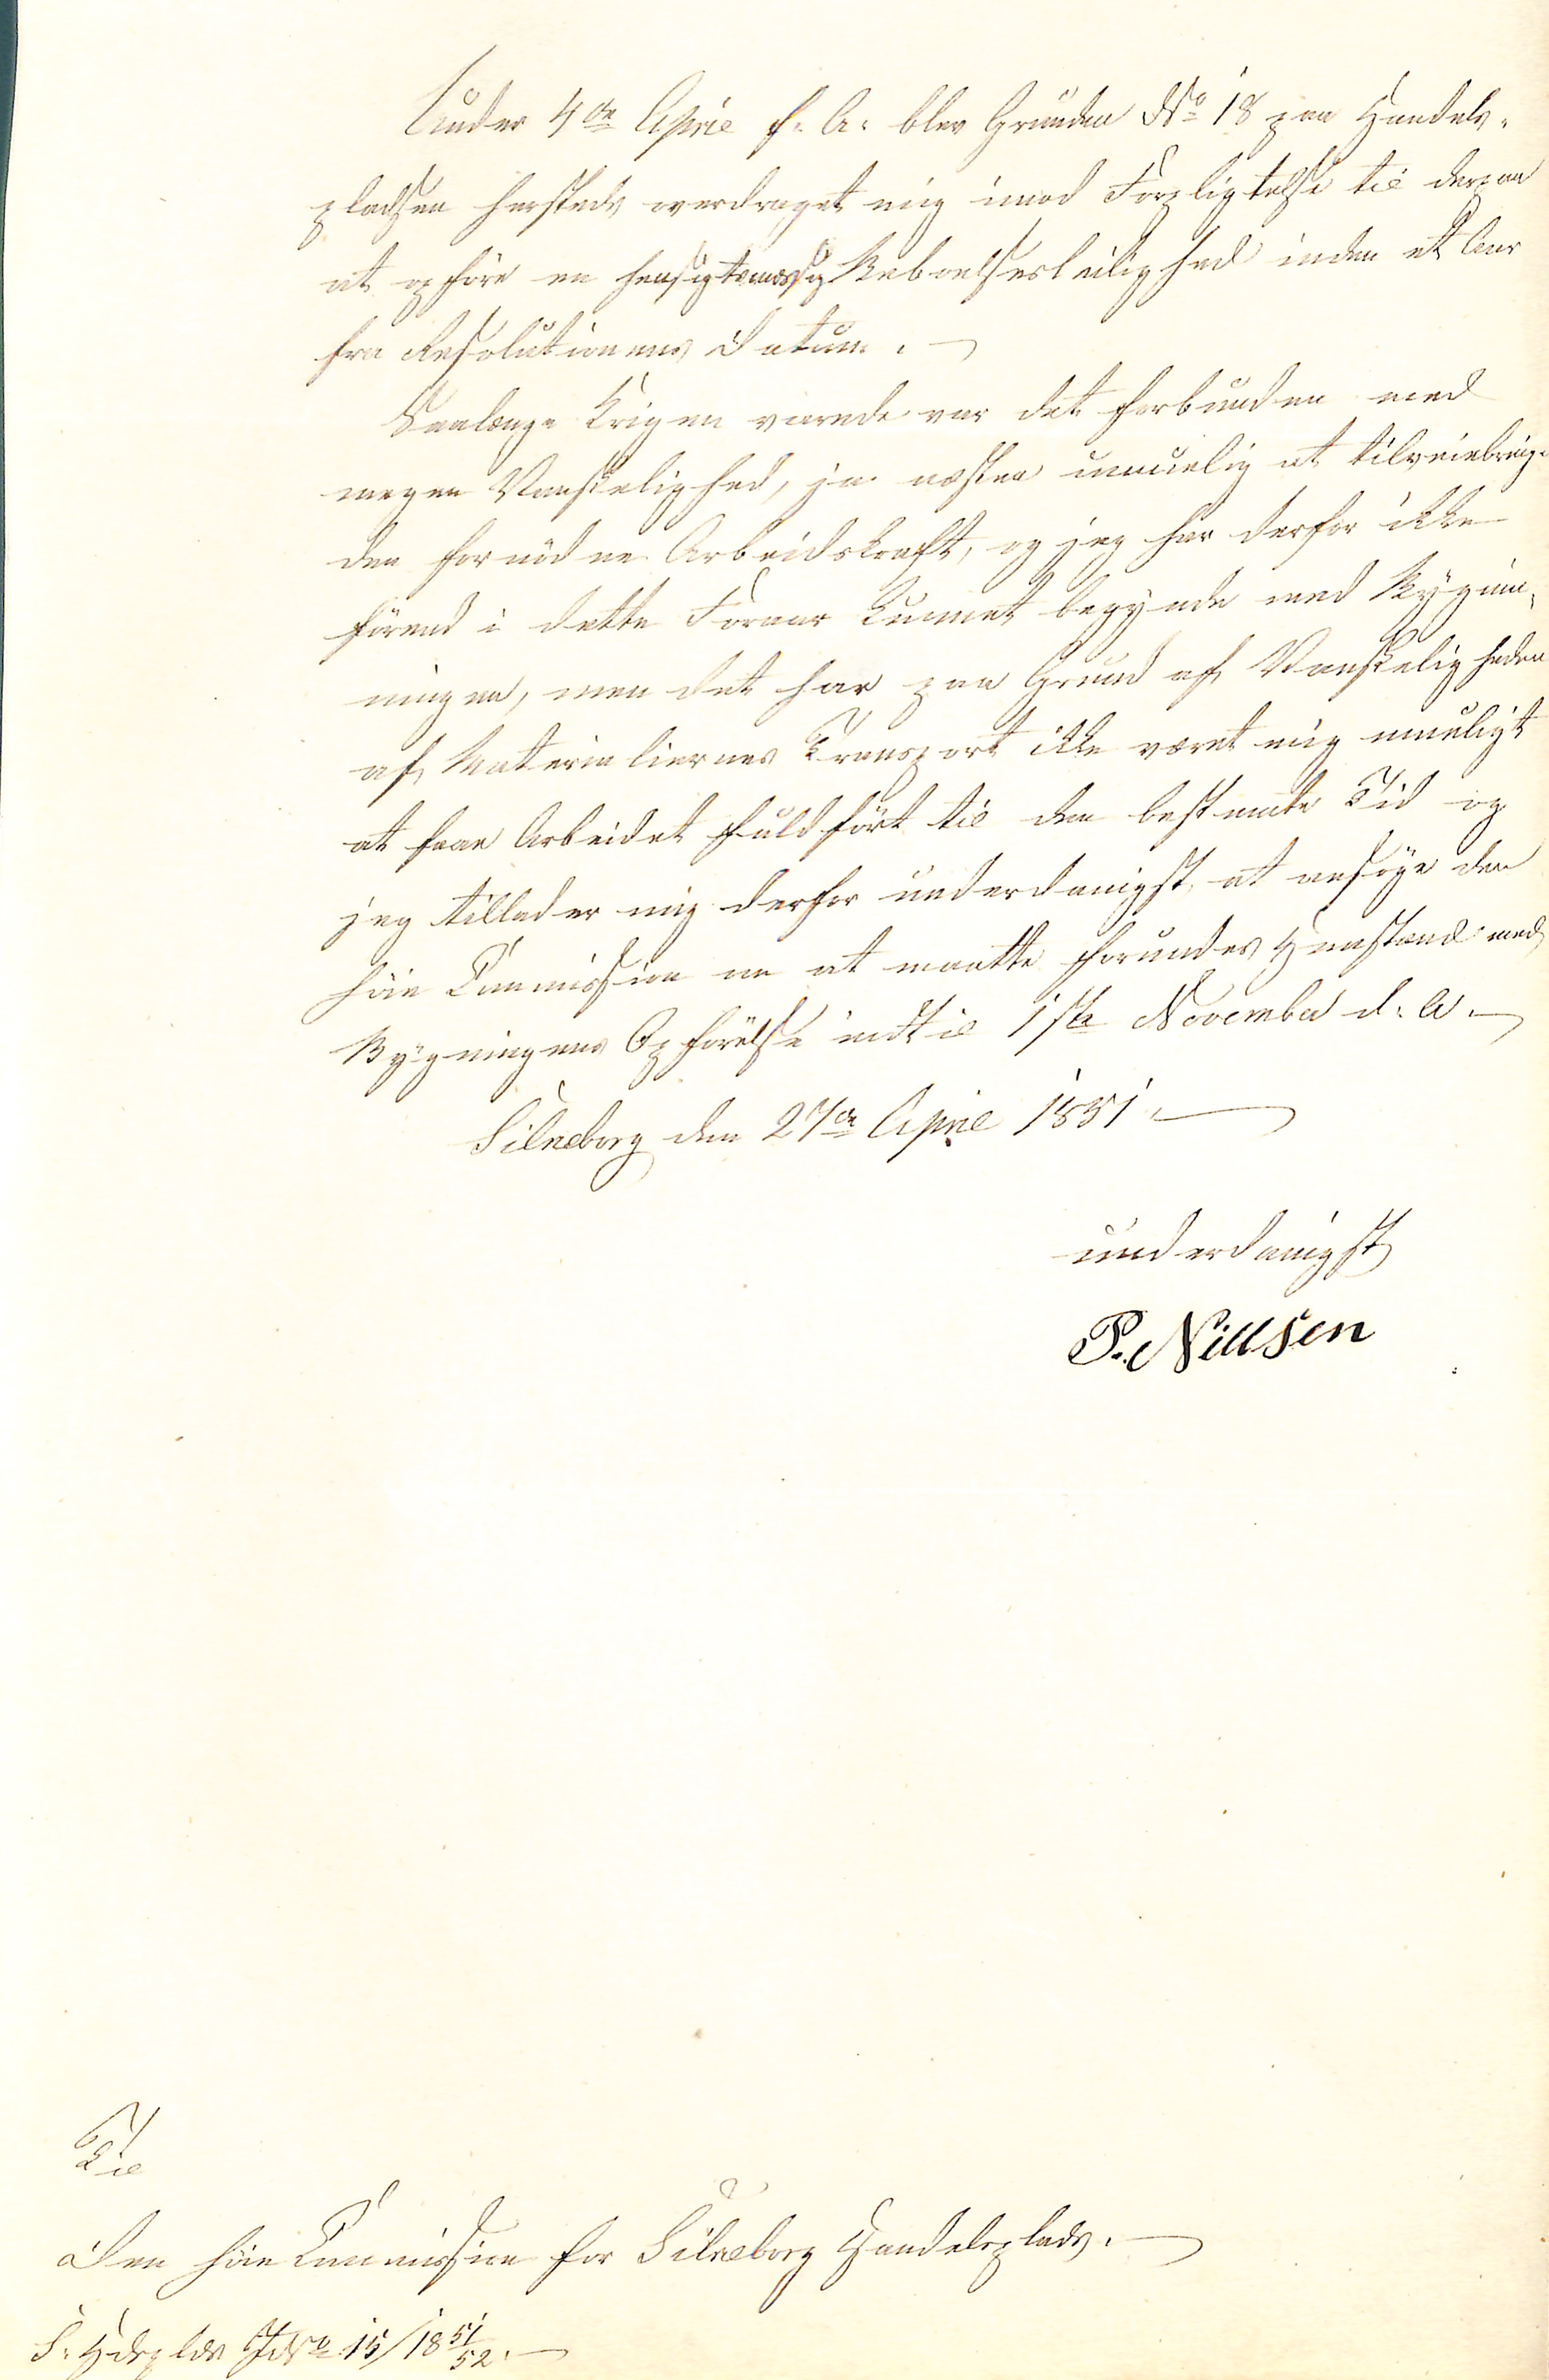 Under 4de April f. A. blev Grunden No 18 paa Handels-
pladsen hersteds overdraget mig imod Forpligtelse til derpaa
at opføre en hensigtsmæssig Beboelsesleilighed inden et Aar
fra Resolutionens Datum.
Saalænge Krigen varede var det forbunden med
megen Vanskelighed, ja næsten umuelig at tilveiebringe
den fornödne Arbeidskraft, og jeg har derfor ikke
förend i dette Foraar kunnet begynde med Bygnin-
ningen, men det har paa Grund af Vanskeligheden
af Materialiernes Transport ikke været mig mueligt
at faae Arbeidet fuldfört til den bestemte Tid og
jeg tillader mig derfor underdanigst at ansöge den
höie Commission om at maatte forundes Henstand med
Bygningens Opförelse indtil 1ste November d. A.
Silkeborg den 27de April 1851.
underdanigst
P. Nillsen
Til
Den höie Commission for Silkeborg Handelsplads.
S. Hdsplds J No 15/18 51/52.